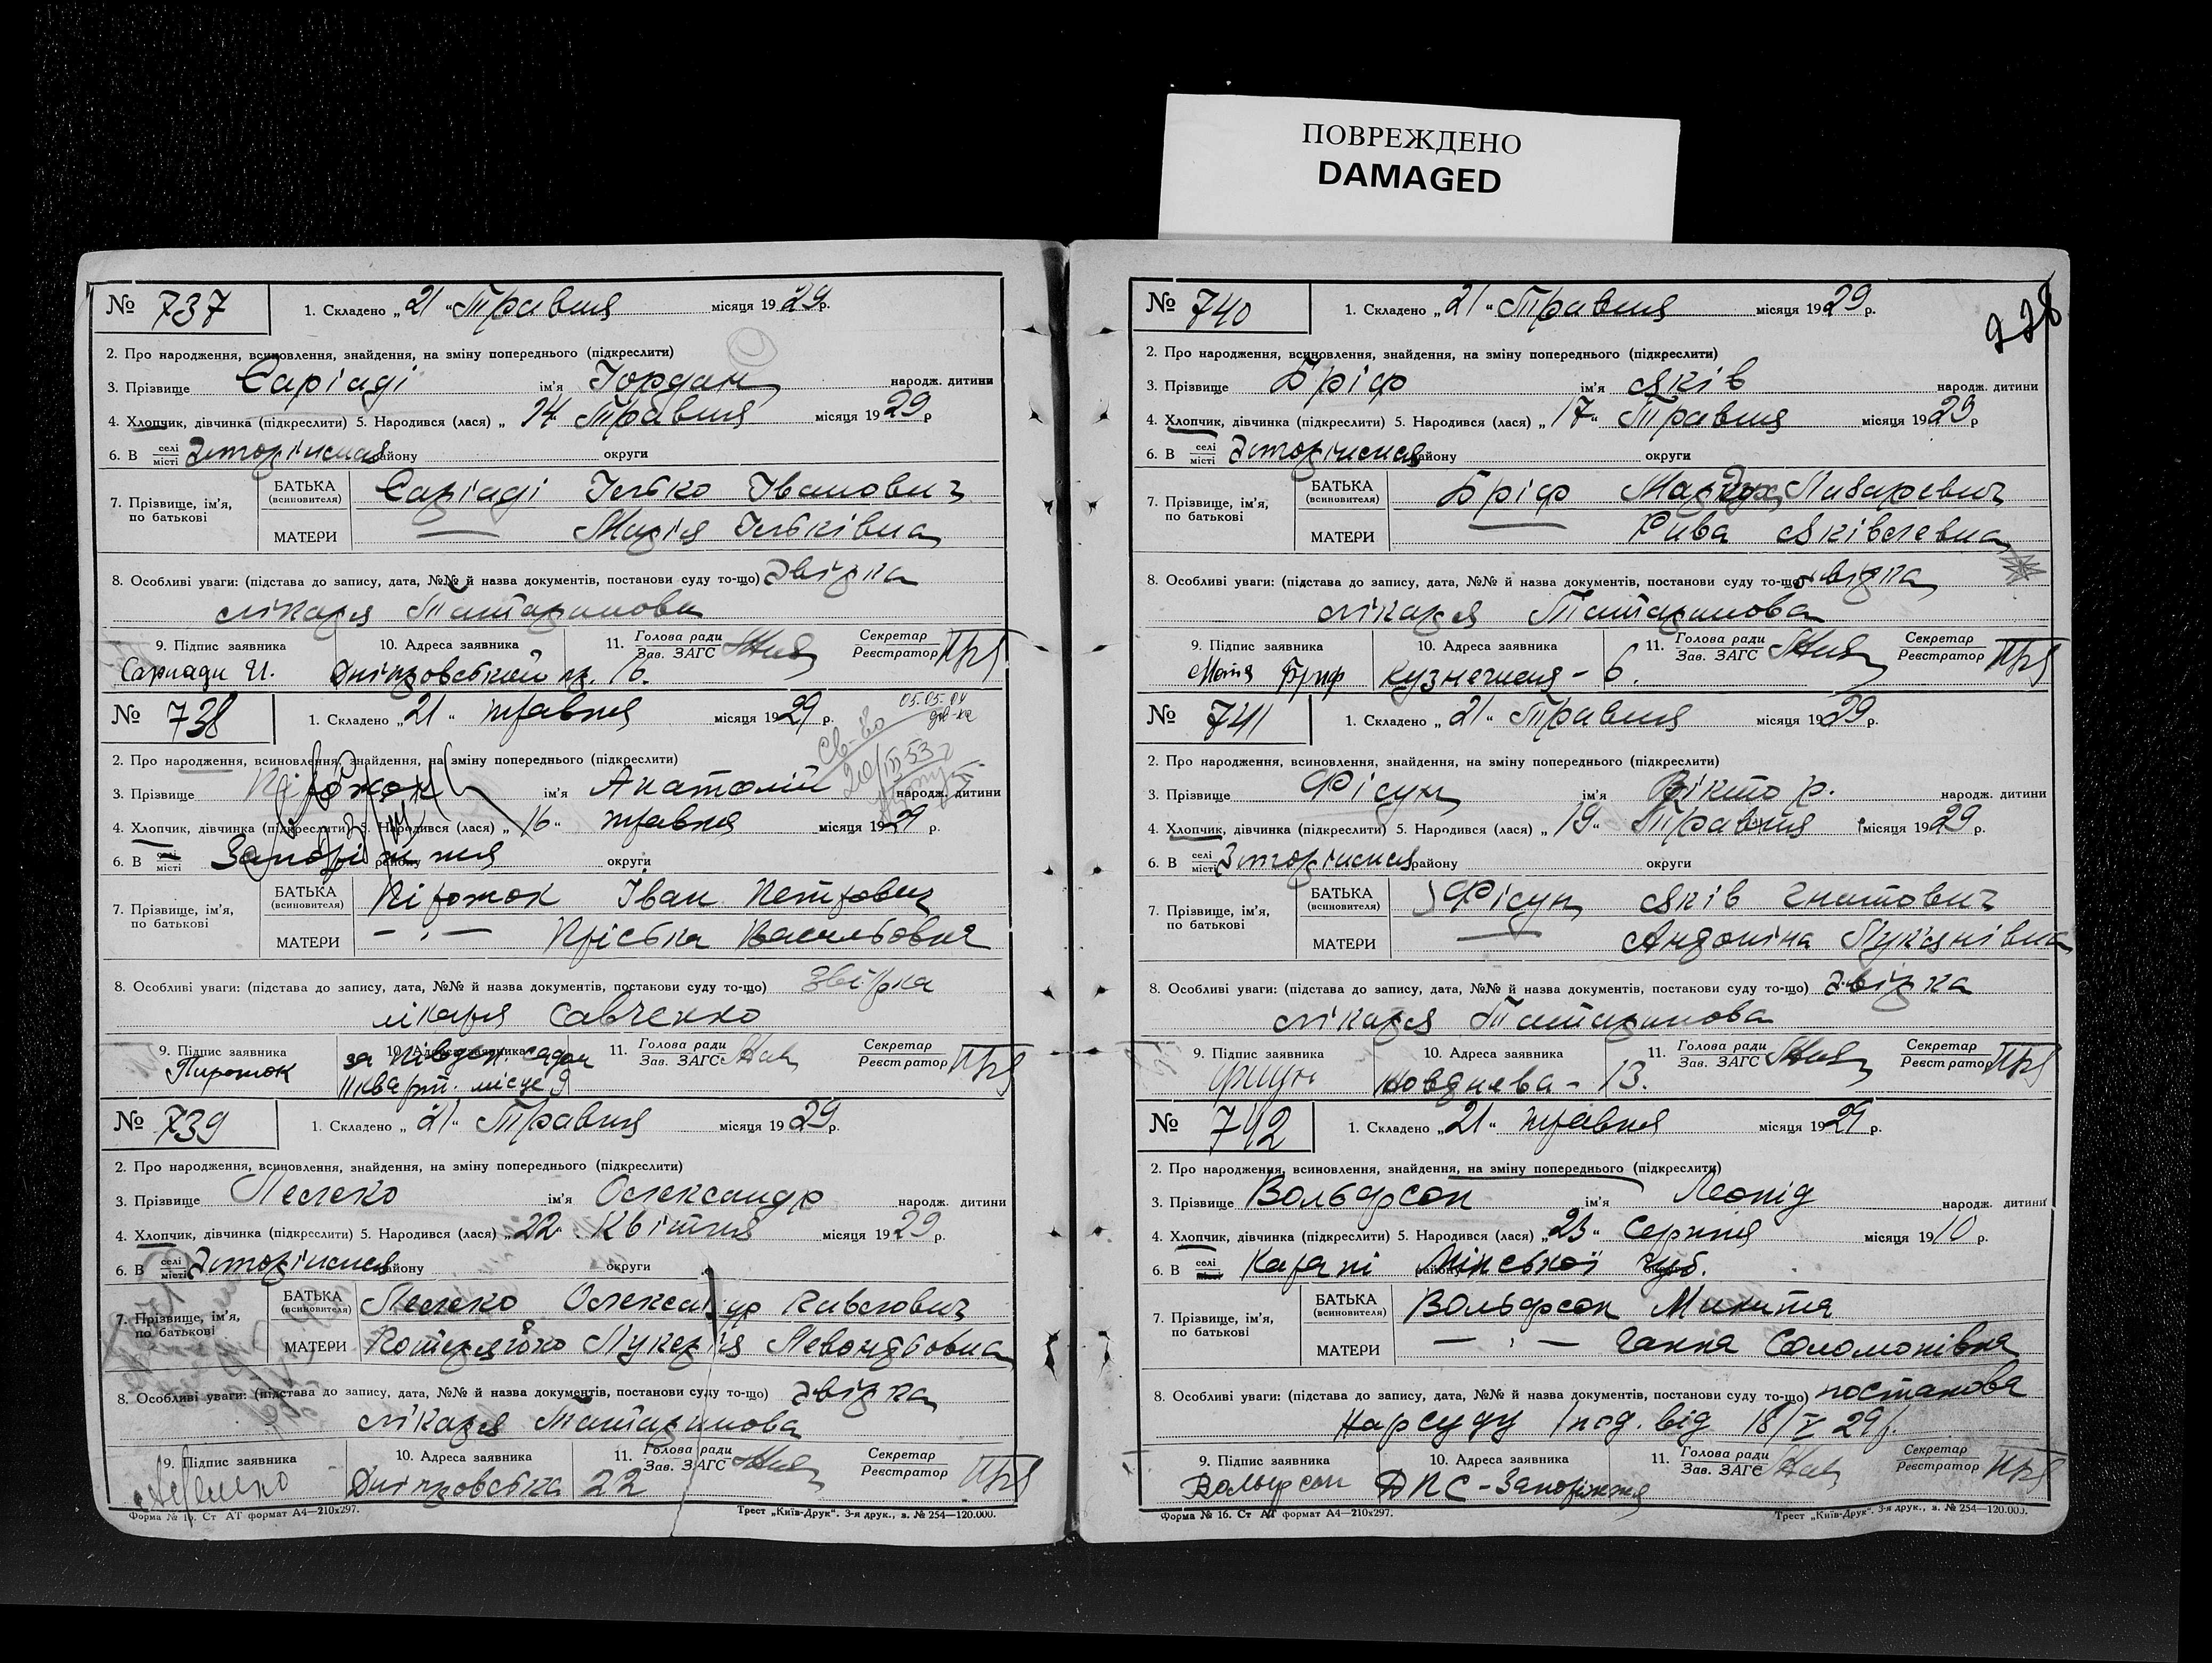 ПОВРЕЖДЕНО
DAMAGED
№ 737
1. Складено „21“ Травня місяця 1929 р.
2. Про народження, всиновлення, знайдення, на зміну попереднього (підкреслити)
3. Прізвище Саріаді ім'я Іордан народж. дитини
4. Хлопчик, дівчинка (підкреслити) 5. Народився (лася) „14 Травня місяця 1929 р
6. В селі місті Запоріжжя району округи
7. Прізвище, ім'я, по батькові
БАТЬКА (всиновителя) Саріаді Ілько Іванович
МАТЕРИ — Марія Ільківна
8. Особливі уваги: (підстава до запису, дата, №№ й назва документів, постанови суду то-що) Звірка
лікаря Татаринова
9. Підпис заявника 10. Адреса заявника 11. Голова ради Зав. ЗАГС Секретар Реєстратор
Сариади И. Дніпровський пр. 16.
№ 738
1. Складено „21“ травня місяця 1929 р.
05.05.04
св-во
20/III 53
2. Про народження, всиновлення, знайдення, на зміну попереднього (підкреслити)
3. Прізвище Пірожок ім'я Анатолій народж. дитини
4. Хлопчик, дівчинка (підкреслити) 5. Народився (лася) „16“ травня місяця 1929 р.
6. В селі місті Запоріжжя району округи
7. Прізвище, ім'я, по батькові
БАТЬКА (всиновителя) Пірожок Іван Петрович
МАТЕРИ — " — Пріська Васильовна
8. Особливі уваги: (підстава до запису, дата, №№ й назва документів, постанови суду то-що) Звірка
лікаря Савченко
9. Підпис заявника 10. Адреса заявника 11. Голова ради Зав. ЗАГС Секретар Реєстратор
Пирожок за півден. садом
II кварт. місце 9
№ 739
1. Складено „21“ Травня місяця 1929 р.
2. Про народження, всиновлення, знайдення, на зміну попереднього (підкреслити)
3. Прізвище Лелеко ім'я Олександр народж. дитини
4. Хлопчик, дівчинка (підкреслити) 5. Народився (лася) „22“ Квітня місяця 1929 р.
6. В селі місті Запоріжжя району округи
7. Прізвище, ім'я, по батькові
БАТЬКА (всиновителя) Лелеко Олександр Павлович
МАТЕРИ Лукерія
8. Особливі уваги: (підстава до запису, дата, №№ й назва документів, постанови суду то-що) Звірка
лікаря Татаринова
9. Підпис заявника 10. Адреса заявника 11. Голова ради Зав. ЗАГС Секретар Реєстратор
Дніпровська 22
Форма № 16. Ст АТ формат А4—210х297. Трест „Київ-Друк“. 3-я друк., з. № 254—120.000.
228
№ 740
1. Складено „21“ Травня місяця 1929 р.
2. Про народження, всиновлення, знайдення, на зміну попереднього (підкреслити)
3. Прізвище Бріф ім'я Яків народж. дитини
4. Хлопчик, дівчинка (підкреслити) 5. Народився (лася) „17“ Травня місяця 1929 р
6. В селі місті Запоріжжя району округи
7. Прізвище, ім'я, по батькові
БАТЬКА (всиновителя) Бріф Мордух
МАТЕРИ — Рива Яківлевна
8. Особливі уваги: (підстава до запису, дата, №№ й назва документів, постанови суду то-що) Звірка
лікаря Татаринова
9. Підпис заявника 10. Адреса заявника 11. Голова ради Зав. ЗАГС Секретар Реєстратор
Бриф Кузнечная - 6.
№ 741
1. Складено „21“ Травня місяця 1929 р.
2. Про народження, всиновлення, знайдення, на зміну попереднього (підкреслити)
3. Прізвище Фісун ім'я Віктор. народж. дитини
4. Хлопчик, дівчинка (підкреслити) 5. Народився (лася) „19“ Травня місяця 1929 р.
6. В селі місті Запоріжжя району округи
7. Прізвище, ім'я, по батькові
БАТЬКА (всиновителя) Фісун Яків Гнатович
МАТЕРИ — Андоніна Лук'янівна
8. Особливі уваги: (підстава до запису, дата, №№ й назва документів, постанови суду то-що) Звірка
лікаря Татаринова
9. Підпис заявника 10. Адреса заявника 11. Голова ради Зав. ЗАГС Секретар Реєстратор
Фисун - 13.
№ 742
1. Складено „21“ травня місяця 1929 р.
2. Про народження, всиновлення, знайдення, на зміну попереднього (підкреслити)
3. Прізвище Вольфсон ім'я Леонід народж. дитини
4. Хлопчик, дівчинка (підкреслити) 5. Народився (лася) „23“ Серпня місяця 1910 р.
6. В селі місті Карані району Мінської губ.
7. Прізвище, ім'я, по батькові
БАТЬКА (всиновителя) Вольфсон Микита
МАТЕРИ — " — Ганна Соломонівна
8. Особливі уваги: (підстава до запису, дата, №№ й назва документів, постанови суду то-що) постанова
Нарсуду від 18/V 29 р.
9. Підпис заявника 10. Адреса заявника 11. Голова ради Зав. ЗАГС Секретар Реєстратор
Вольфсон ДПС - Запоріжжя
Форма № 16. Ст АТ формат А4—210х297. Трест „Київ-Друк“. 3-я друк., з. № 254—120.000.